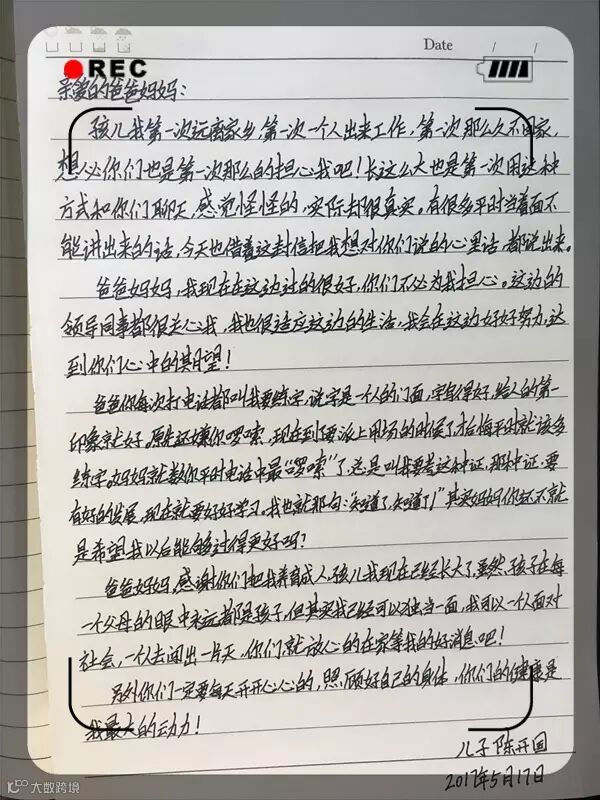 Date / /
REC
亲爱的爸爸妈妈：
孩儿我第一次远离家乡，第一次一个人出来工作，第一次那么久不回家，
想必你们也是第一次那么的担心我吧！长这么大也是第一次用这种
方式和你们聊天，感觉怪怪的，实际却很真实。有很多平时当着面不
能讲出来的话，今天也借着这封信把我想对你们说的心里话都说出来。
爸爸妈妈，我现在在这边过的很好，你们不必为我担心。这边的
领导同事都很关心我，我也很适应这边的生活，我会在这边好好努力，达
到你们心中的期望！
爸爸你每次打电话都叫我要练字，说字是一个人的门面，字写得好，给人的第一
印象就好。原先还嫌你啰嗦，现在到了要派上用场的时候了，才后悔平时就该多
练字。妈妈就数你平时电话中最“啰嗦”了，总是叫我要考这种证，那种证，要
有好的发展，现在就要好好学习。我也就那句：“知道了，知道了！”其实妈妈你还不就
是希望我以后能够过得更好吗？
爸爸妈妈，感谢你们把我养育成人，孩儿我现在已经长大了，虽然，孩子在每
一个父母的眼中永远都是孩子，但其实我已经可以独当一面，我可以一个人面对
社会，一个人去闯出一片天，你们就放心的在家等我的好消息吧！
另外你们一定要每天开开心心的，照顾好自己的身体，你们的健康是
我最大的动力！
儿子 陈开国
2017年5月17日
大数跨境